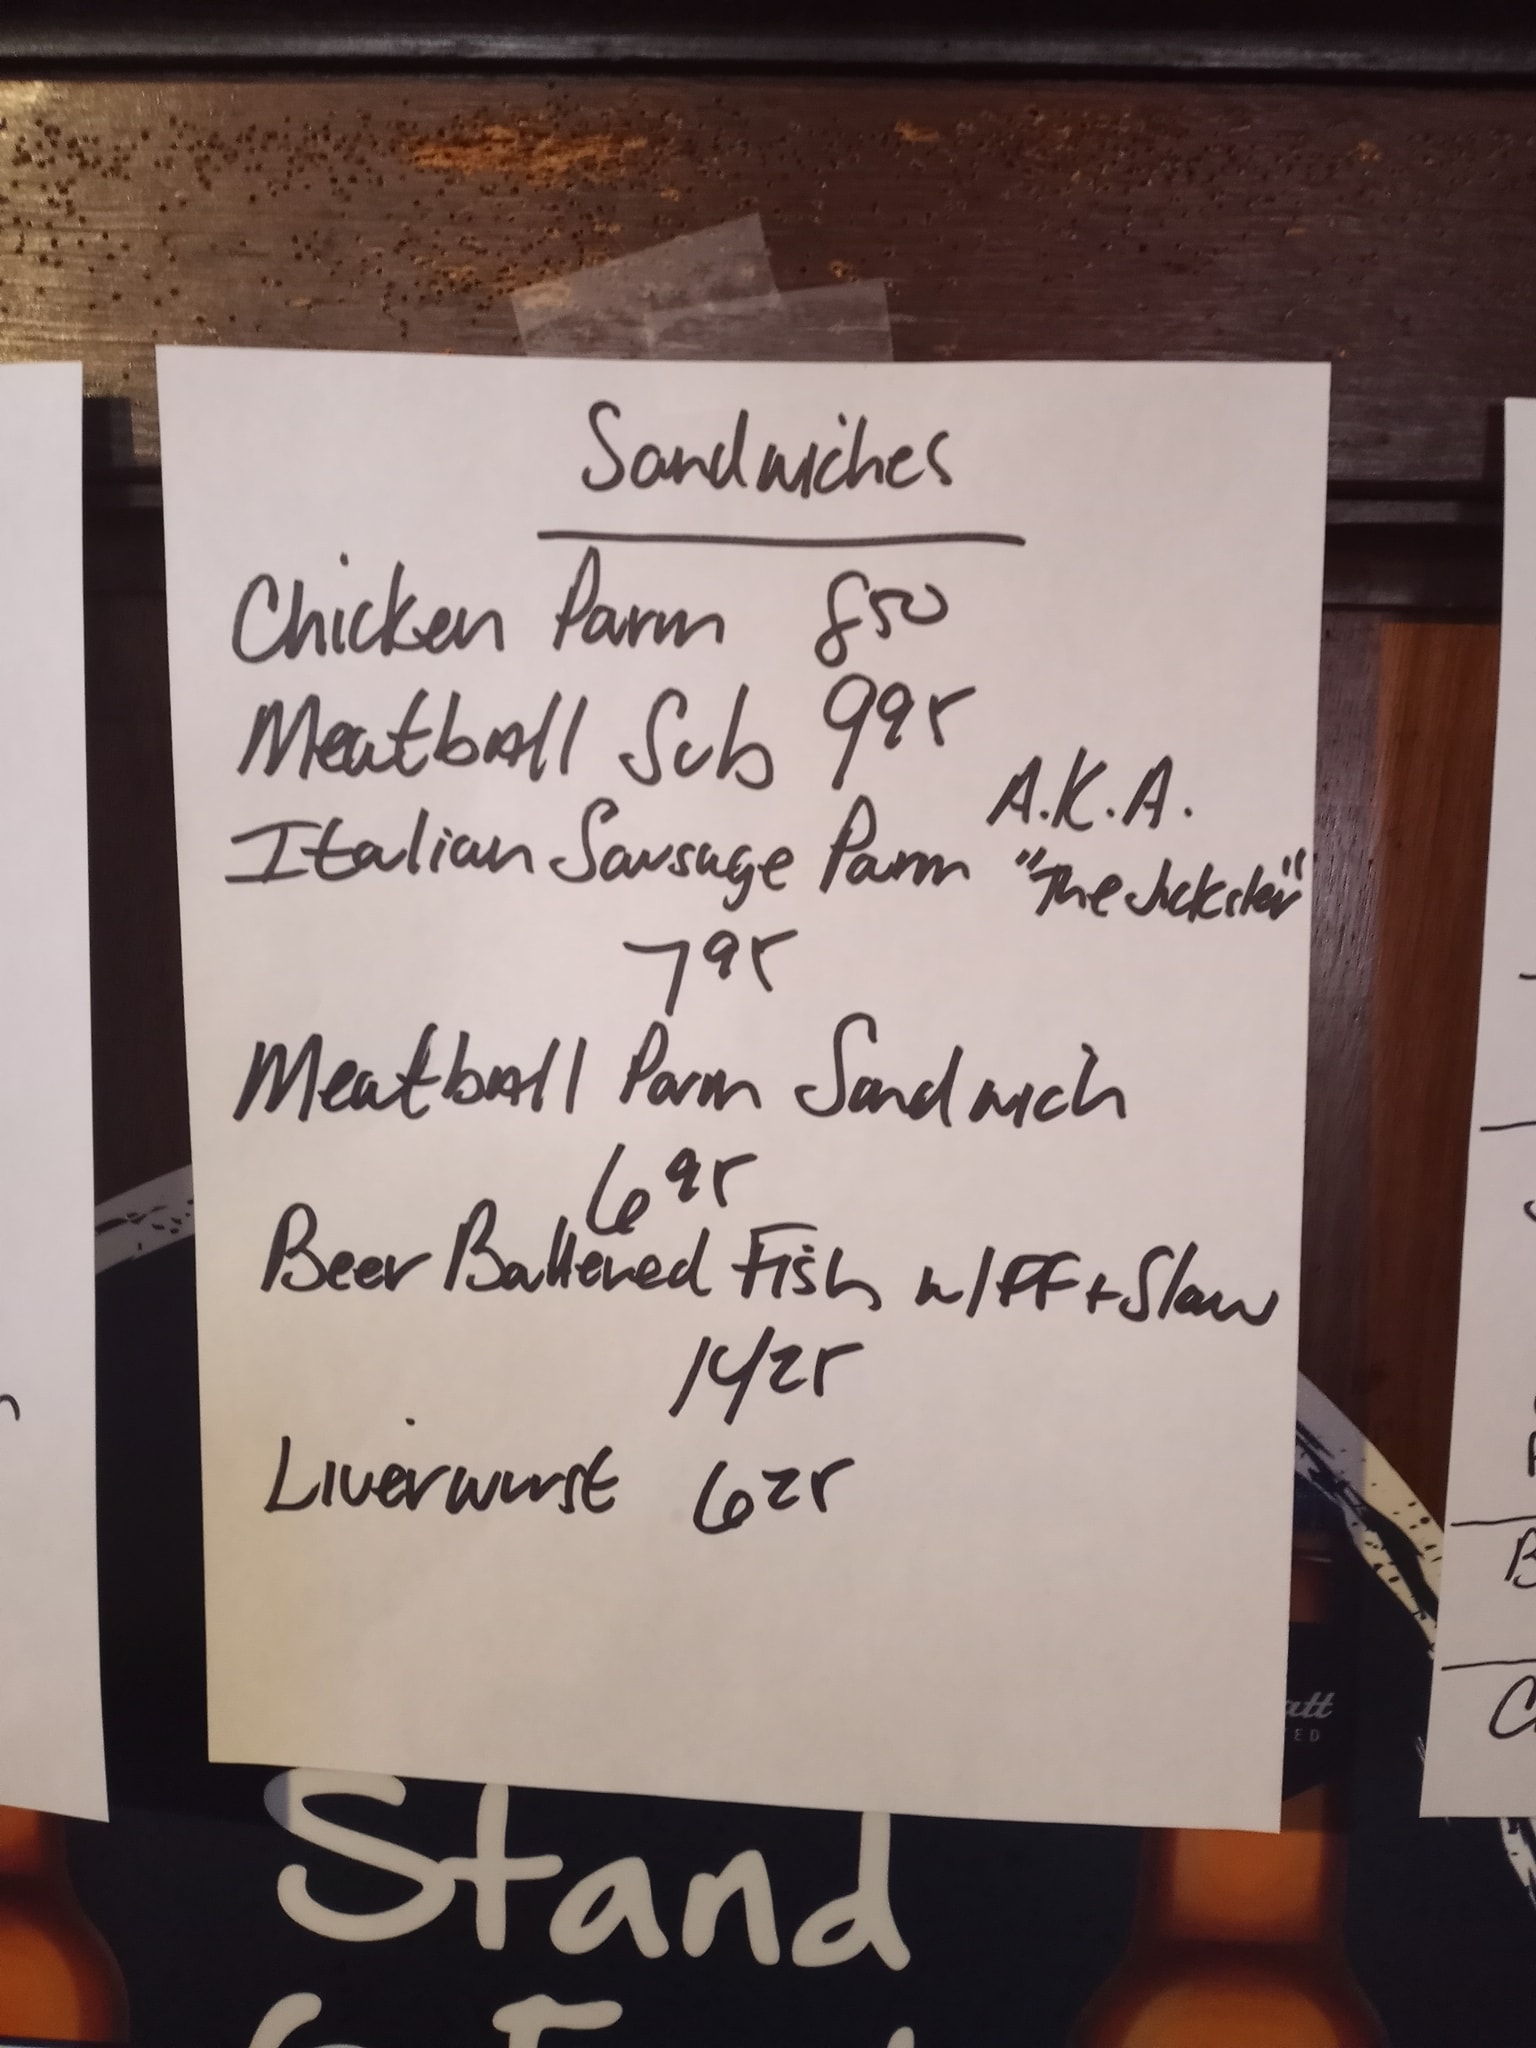 Sandwiches
Chicken Parm 850
Meatball Sub 995
A.K.A.
Italian Sausage Parm "The Jickster"
795
Meatball Parm Sandwich
695
Beer Battered Fish w/FF + Slaw
14/25
Liverwurst 625
Stand